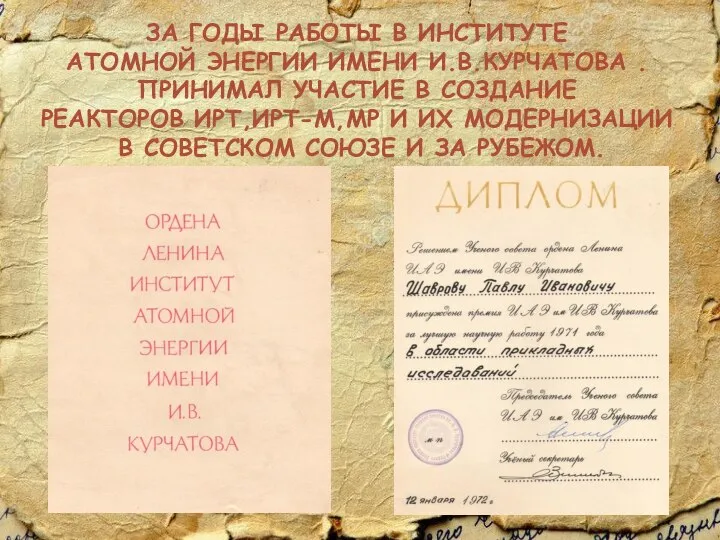 ЗА ГОДЫ РАБОТЫ В ИНСТИТУТЕ
АТОМНОЙ ЭНЕРГИИ ИМЕНИ И.В.КУРЧАТОВА .
ПРИНИМАЛ УЧАСТИЕ В СОЗДАНИЕ
РЕАКТОРОВ ИРТ,ИРТ-М,МР И ИХ МОДЕРНИЗАЦИИ
В СОВЕТСКОМ СОЮЗЕ И ЗА РУБЕЖОМ.
ОРДЕНА
ЛЕНИНА
ИНСТИТУТ
АТОМНОЙ
ЭНЕРГИИ
ИМЕНИ
И.В.
КУРЧАТОВА
ДИПЛОМ
Решением Ученого совета ордена Ленина
ИАЭ имени ИВ Курчатова
Шаврову Павлу Ивановичу
присуждена премия ИАЭ им ИВ Курчатова
за лучшую научную работу 1971 года
в области прикладных
исследований
Председатель Ученого совета
ИАЭ им. ИВ Курчатова
Учёный секретарь
мп
12 января 1972г.